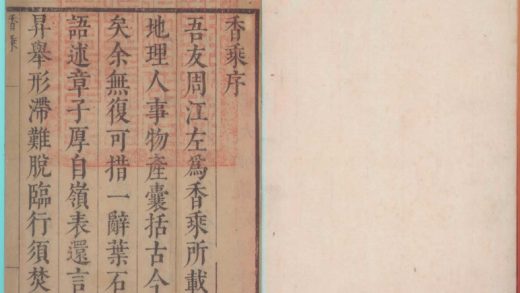 香乘序
吾友周江左為香乘所載
地理人事物產囊括古今
矣余無復可措一辭葉石
語述章子厚自嶺表還言
昇舉形滯難脫臨行須焚
香乘